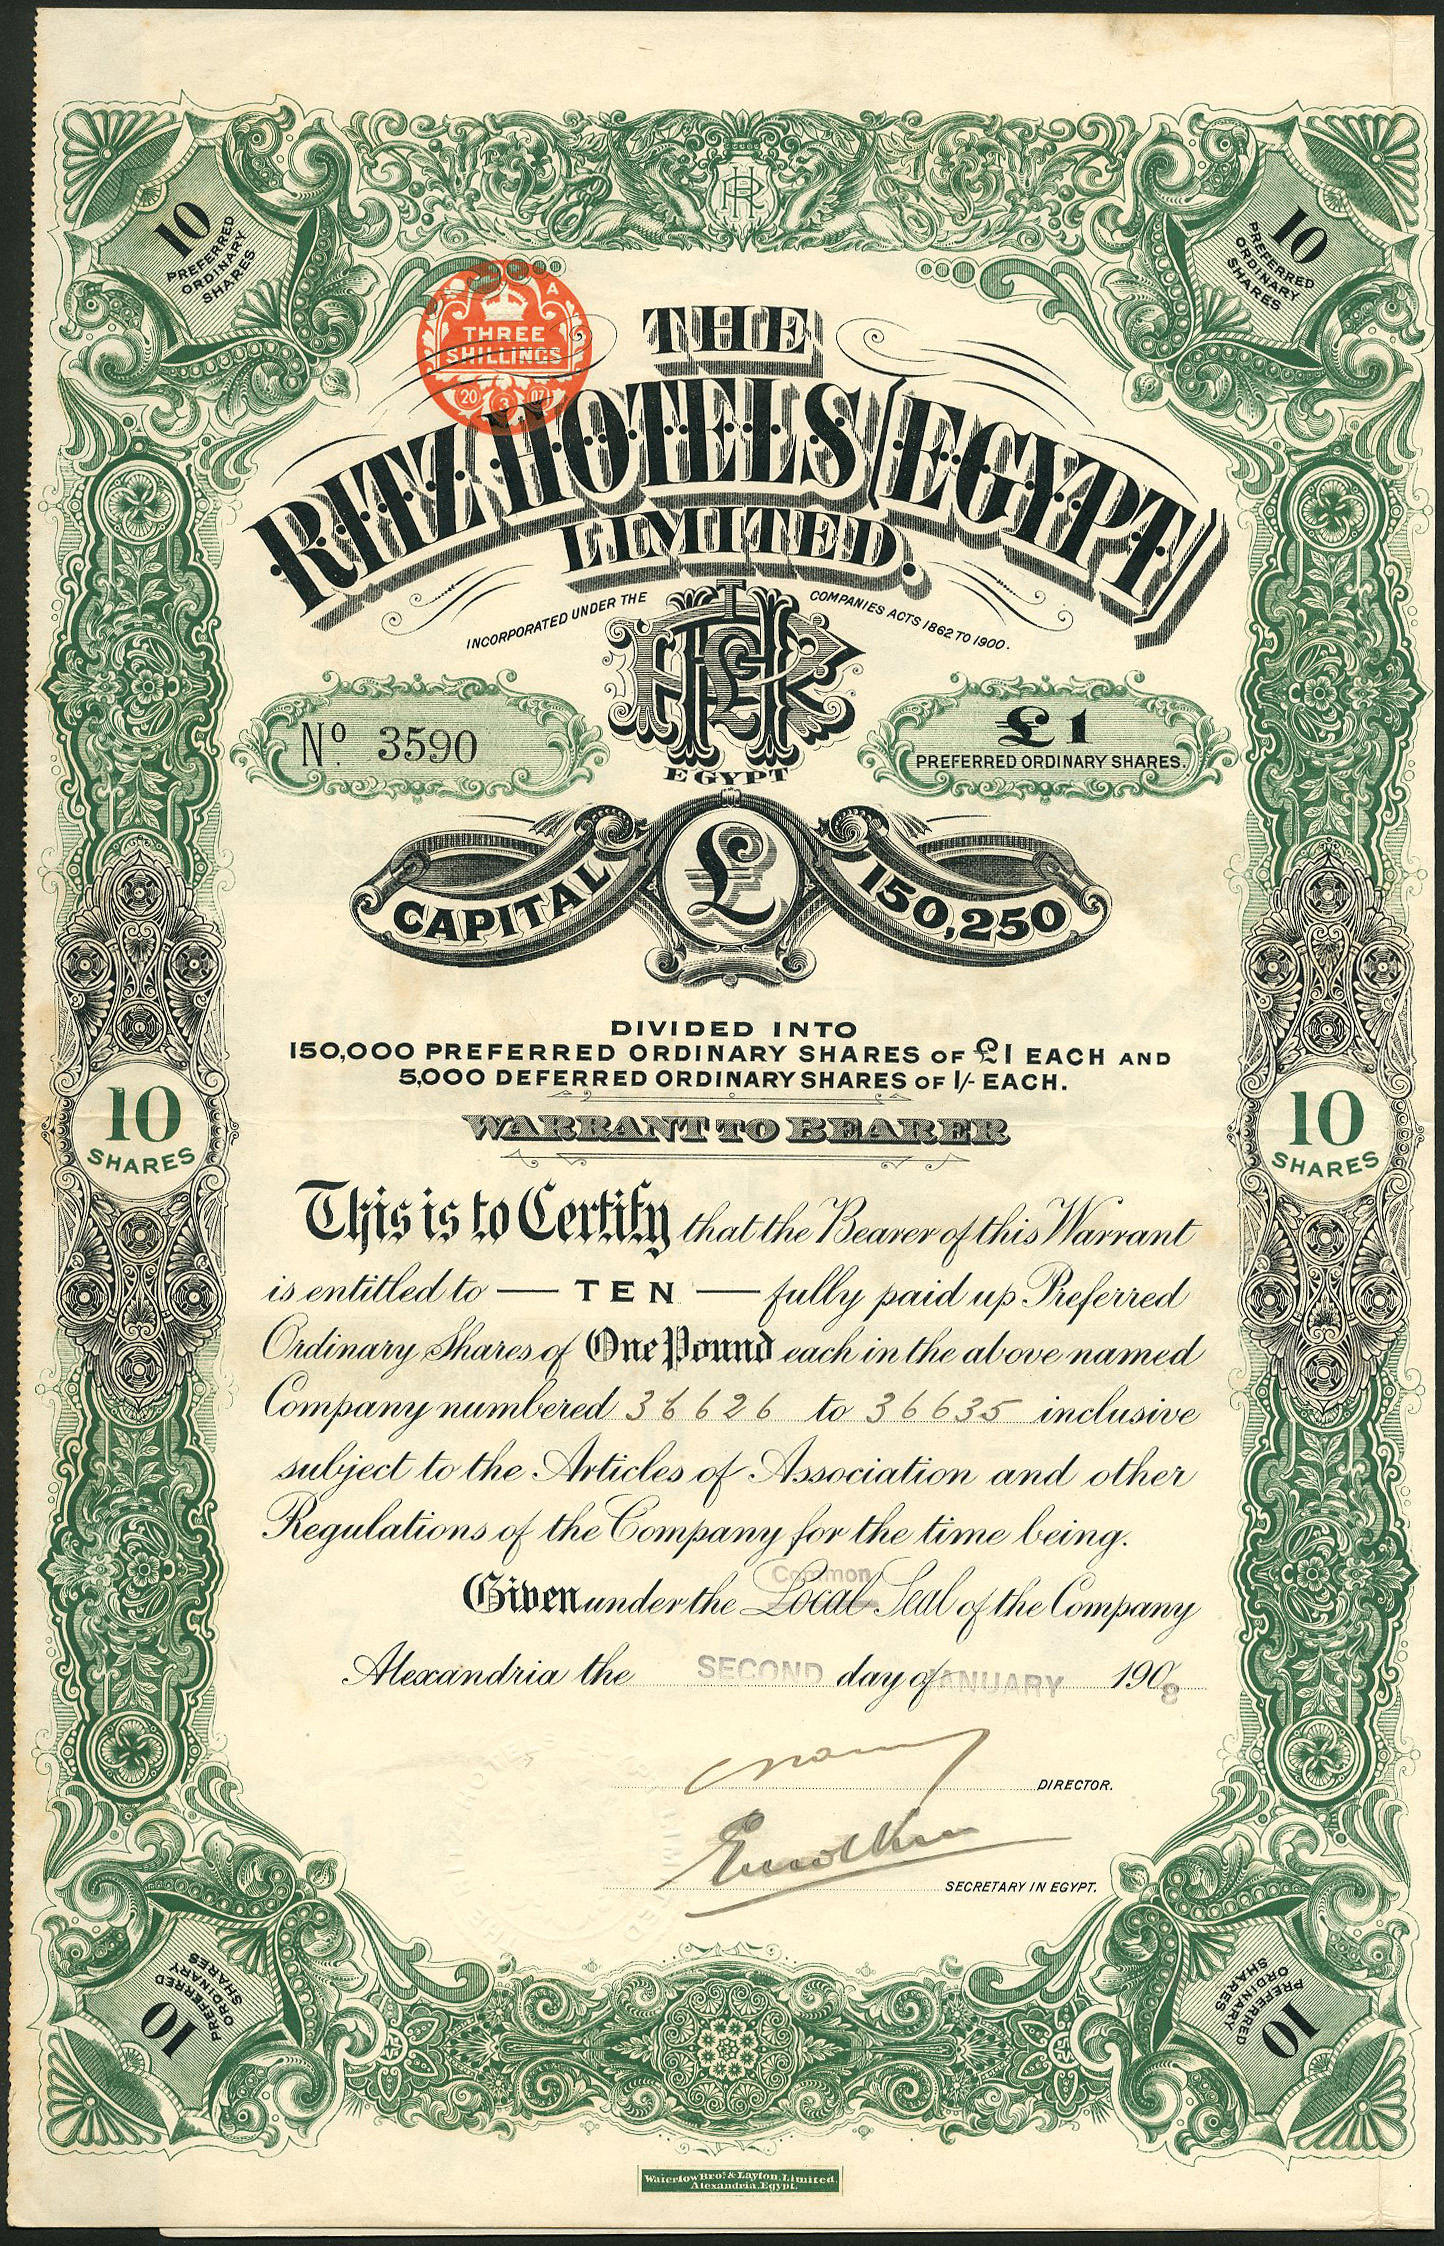 10
PREFERRED
ORDINARY
SHARES
10
PREFERRED
ORDINARY
SHARES
A
THREE
SHILLINGS
20 3 07
THE
RITZ HOTELS (EGYPT)
LIMITED.
INCORPORATED UNDER THE COMPANIES ACTS 1862 TO 1900.
EGYPT
No. 3590
£1
PREFERRED ORDINARY SHARES.
CAPITAL £ 150,250
DIVIDED INTO
150,000 PREFERRED ORDINARY SHARES OF £1 EACH AND
5,000 DEFERRED ORDINARY SHARES OF 1/- EACH.
WARRANT TO BEARER
10
SHARES
10
SHARES
This is to Certify that the Bearer of this Warrant
is entitled to — TEN — fully paid up Preferred
Ordinary Shares of One Pound each in the above named
Company numbered 36626 to 36635 inclusive
subject to the Articles of Association and other
Regulations of the Company for the time being.
Common
Given under the Local Seal of the Company
Alexandria the SECOND day of JANUARY 1908
DIRECTOR.
SECRETARY IN EGYPT.
10
PREFERRED
ORDINARY
SHARES
10
PREFERRED
ORDINARY
SHARES
Waterlow Bros. & Layton, Limited,
Alexandria, Egypt.